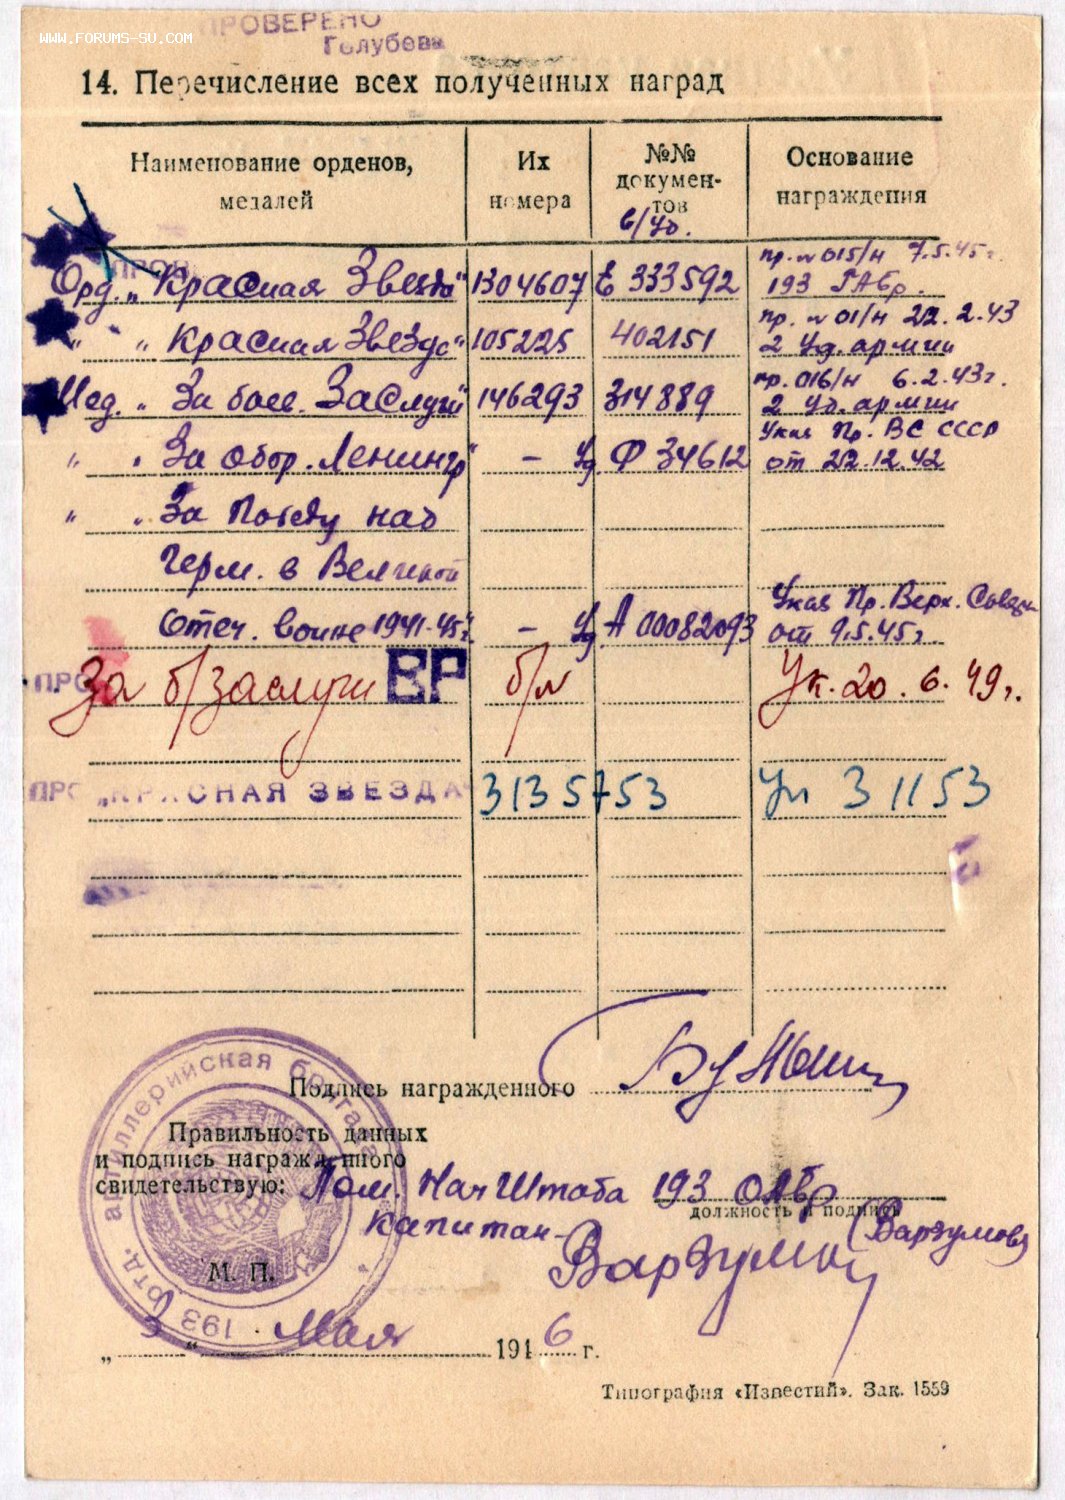 ПРОВЕРЕНО
WWW.FORUMS-SU.COM
Голубева
14. Перечисление всех полученных наград
Наименование орденов, медалей
Их номера
№№ документов
в/уд.
Основание награждения
ПРОВ
Орд. „Красная Звезда" 1304607 Е 333592 пр. № 015/н 7.5.45г. 193 ГАБр.
" „Красная Звезда" 105225 402151 пр. № 01/н 22.2.43 2 Уд. армии
Мед. „За боев. Заслуги" 146293 314889 пр. 016/н 6.2.43г. 2 Уд. армии
" „За обор. Ленингр" — Уд. Ф 34612 Указ Пр. ВС СССР от 22.12.42
" „За Победу над
Герм. в Великой
Отеч. войне 1941-45г." — Уд. А 00082093 Указ Пр. Верх. Совета от 9.5.45г.
ПРО
За б/заслуги ВР б/н Ук. 20.6.49г.
ПРО „КРАСНАЯ ЗВЕЗДА" 3135753 Ук 3 11 53
Подпись награжденного
Правильность данных
и подпись награжденного
свидетельствую: Пом. Нач Штаба 193 ОАБр
должность и подпись
Капитан - (Варзумов)
М. П.
193 отд. артиллерийская бригада
„ " Мая 1946 г.
Типография «Известий». Зак. 1559